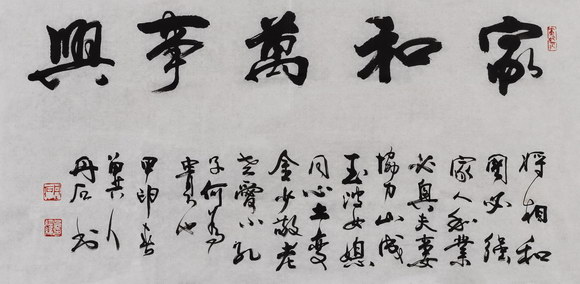 家和萬事興
將相和
國必強
家人和業
必興夫妻
協力山成
玉婆媳
同心土變
金少敬老
老愛小孔
子何為
貴也
卯春
人
丹石書